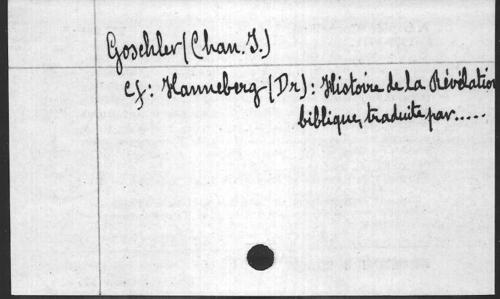 Goschler (Chan. I.)
cf: Hanneberg (Dr): Histoire de la Révélation
biblique, traduite par.....